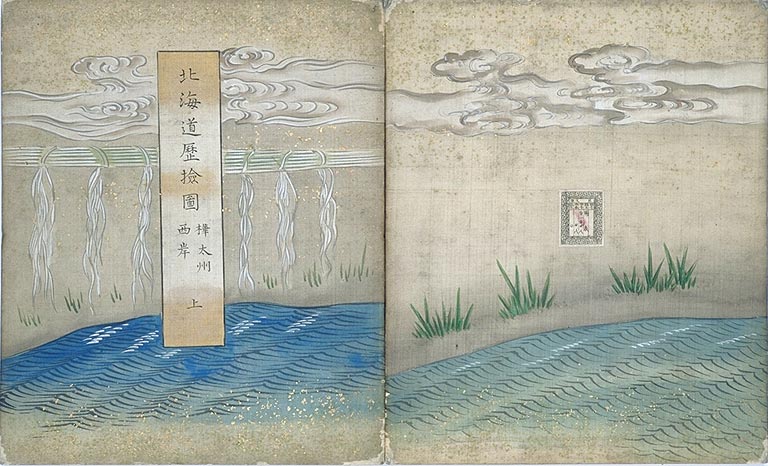 北海道歴撿圖
樺太州
西岸
上